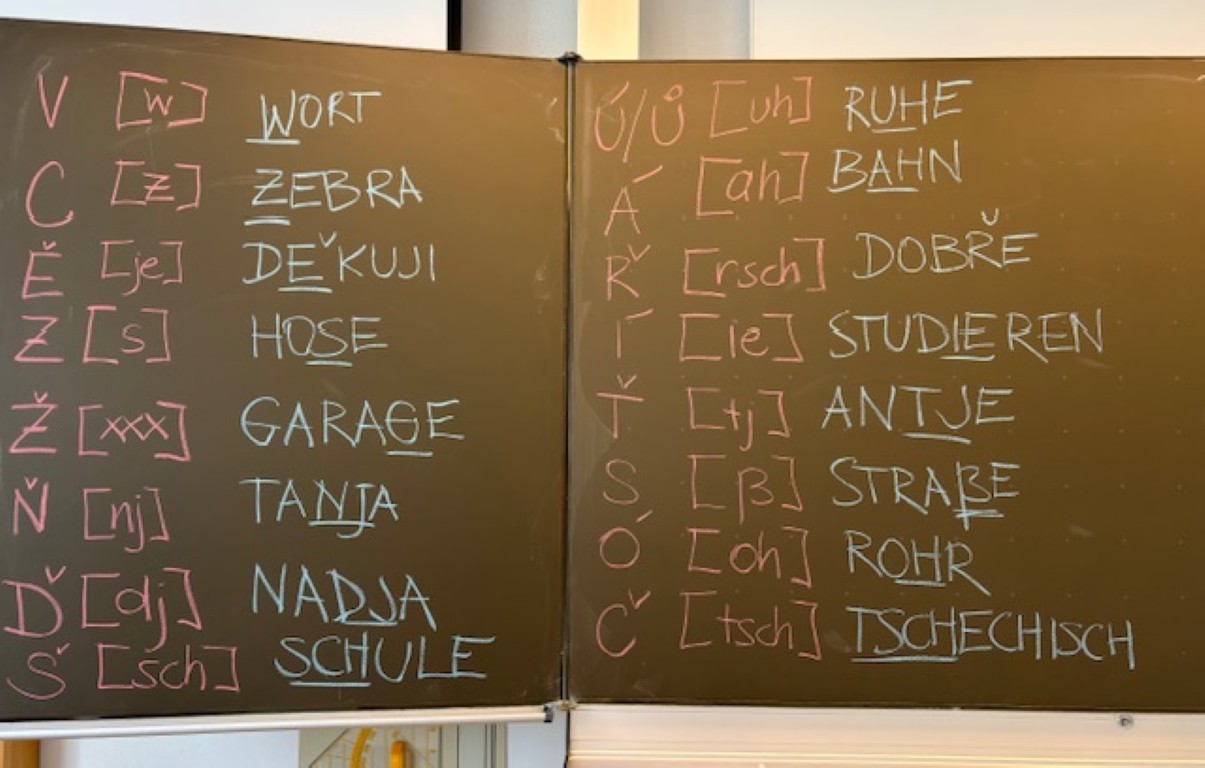 V [w] WORT
C [z] ZEBRA
Ě [je] DĚKUJI
Z [s] HOSE
Ž [xxx] GARAGE
Ň [nj] TANJA
Ď [dj] NADJA
Š [sch] SCHULE
Ú/Ů [uh] RUHE
Á [ah] BAHN
Ř [rsch] DOBŘE
Í [ie] STUDIEREN
Ť [tj] ANTJE
S [ß] STRAßE
Ó [oh] ROHR
Č [tsch] TSCHECHISCH